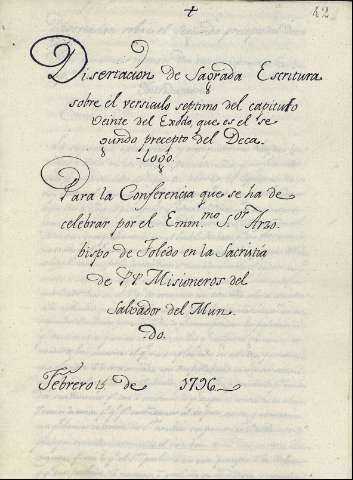 42
Disertacion de Sagrada Escritura
sobre el versiculo septimo del capitulo
veinte del Exodo, que es el se
gundo precepto del Deca
-logo.
Para la Conferencia que se ha de
celebrar por el Emm.mo S.or Arzo
bispo de Toledo en la Sacristia
de PP Misioneros del
Salvador del Mun
do.
Febrero 15 de 1796